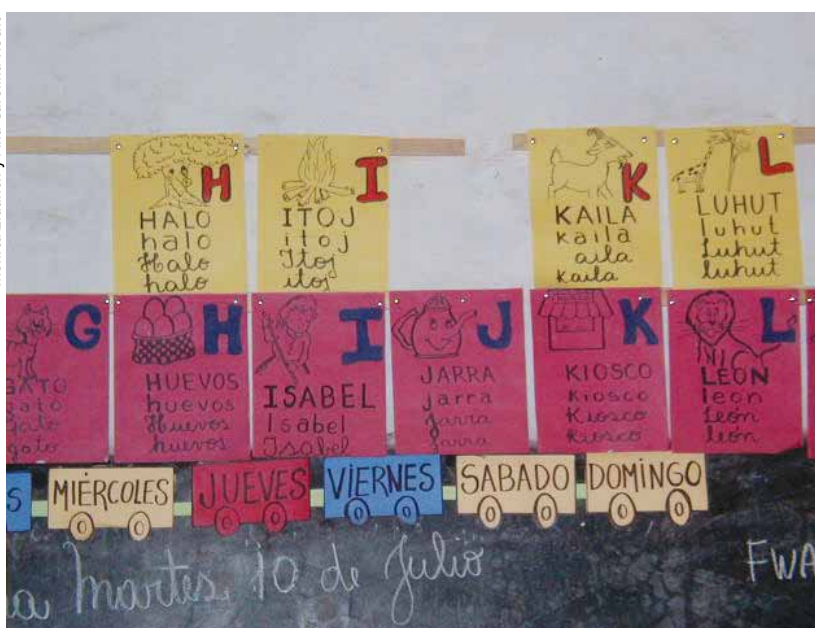 H
HALO
halo
Halo
halo
I
ITOJ
itoj
Itoj
itoj
K
KAILA
kaila
aila
kaila
L
LUHUT
luhut
Luhut
luhut
G
GATO
gato
Gato
gato
H
HUEVOS
huevos
Huevos
huevos
I
ISABEL
Isabel
Isabel
J
JARRA
jarra
Jarra
jarra
K
KIOSCO
kiosco
Kiosco
kiosco
L
LEON
leon
León
león
S MIÉRCOLES JUEVES VIERNES SABADO DOMINGO
a martes, 10 de Julio FWA